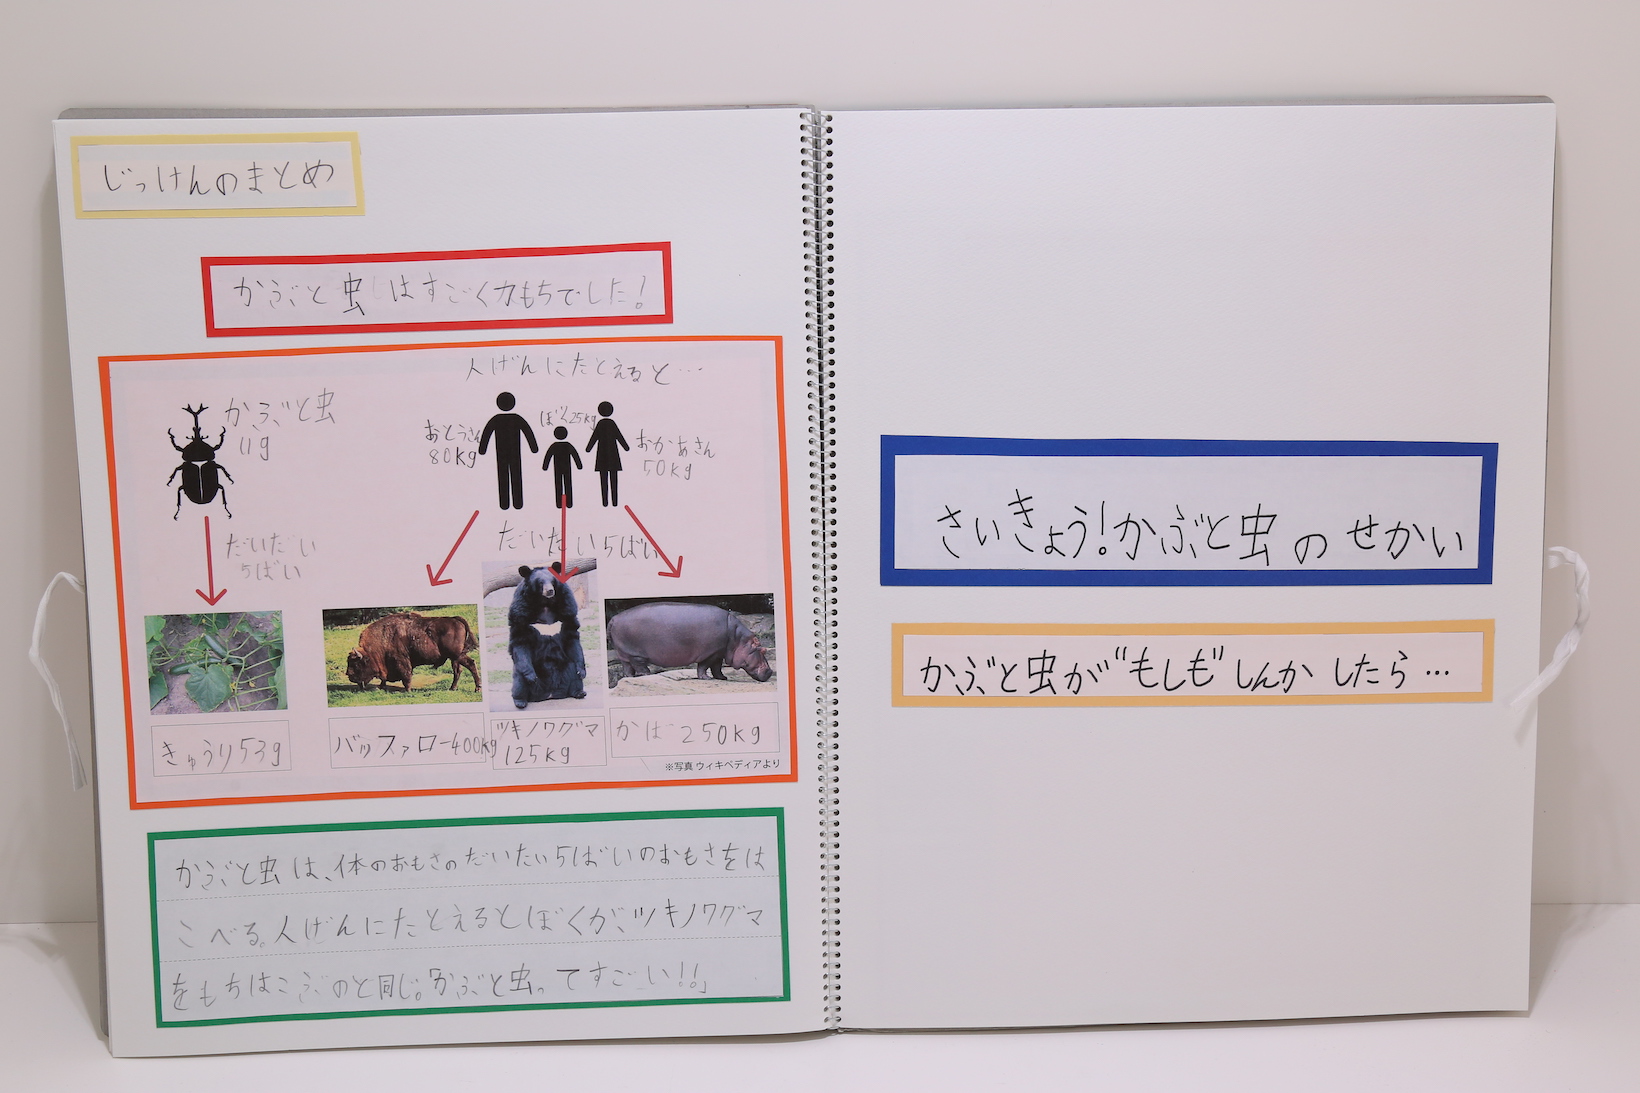 じっけんのまとめ
かぶと虫はすごく力もちでした!
人げんにたとえると…
かぶと虫
11g
おとうさん
80kg
ぼく25kg
おかあさん
50kg
だいだい
5ばい
だいたい5ばい
きゅうり53g
バッファロー400kg
ツキノワグマ
125kg
かば 250kg
※写真 ウィキペディアより
かぶと虫は、体のおもさのだいたい5ばいのおもさをは
こべる。人げんにたとえるとぼくが、ツキノワグマ
をもちはこぶのと同じ。「かぶと虫ってすごーい!!」
さいきょう!かぶと虫のせかい
かぶと虫が“もしも”しんかしたら…